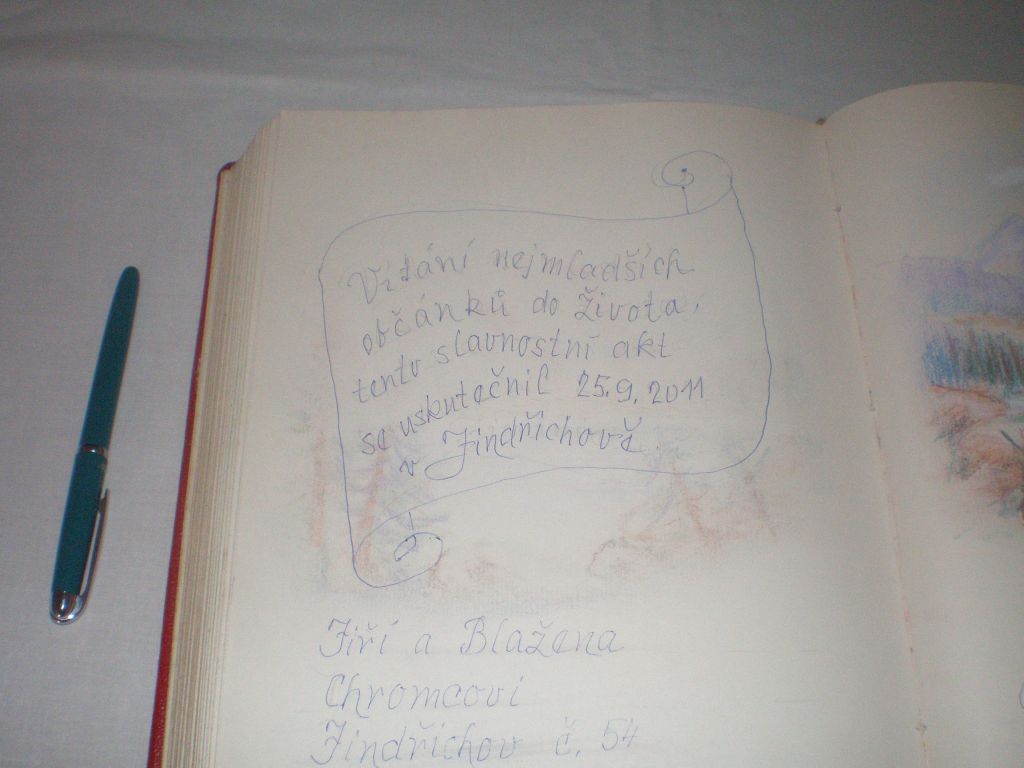 Vítání nejmladších
občánků do života,
tento slavnostní akt
se uskutečnil 25.9.2011
v Jindřichově
Jiří a Blažena
Chromcovi
Jindřichov č. 54